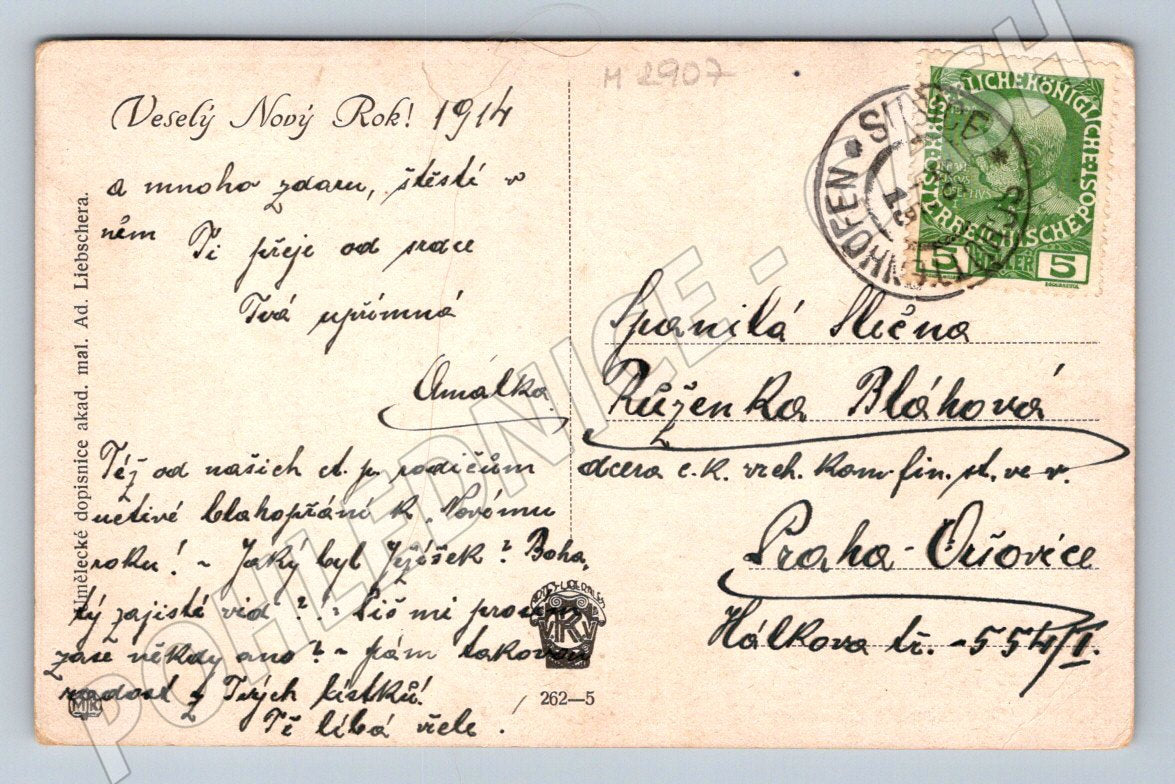 M 2907
Veselý Nový Rok! 1914
a mnoho zdaru, štěstí v
něm Ti přeje od srdce
Tvá upřímná
Amálka
Též od našich ct. p. rodičům
uctivé blahopřání k Novému
roku! - Jaký byl Ježíšek? Boha,
tý zajisté viď? Piš mi prosím
zase někdy ano? - Mám takovou
radost z Tvých lístků!
Tě líbá vřele.
Umělecké dopisnice akad. mal. Ad. Liebschera.
MK
262—5
KAISERLICHE KÖNIGLICHE ÖSTERREICHISCHE POST
5 HELLER 5
Spanilá Slečna
Růženka Bláhová
dcera c.k. vrch. kom. fin. st. ve v.
Praha - Vršovice
Hálkova tř. - 554/I.
POHLEDNICE -